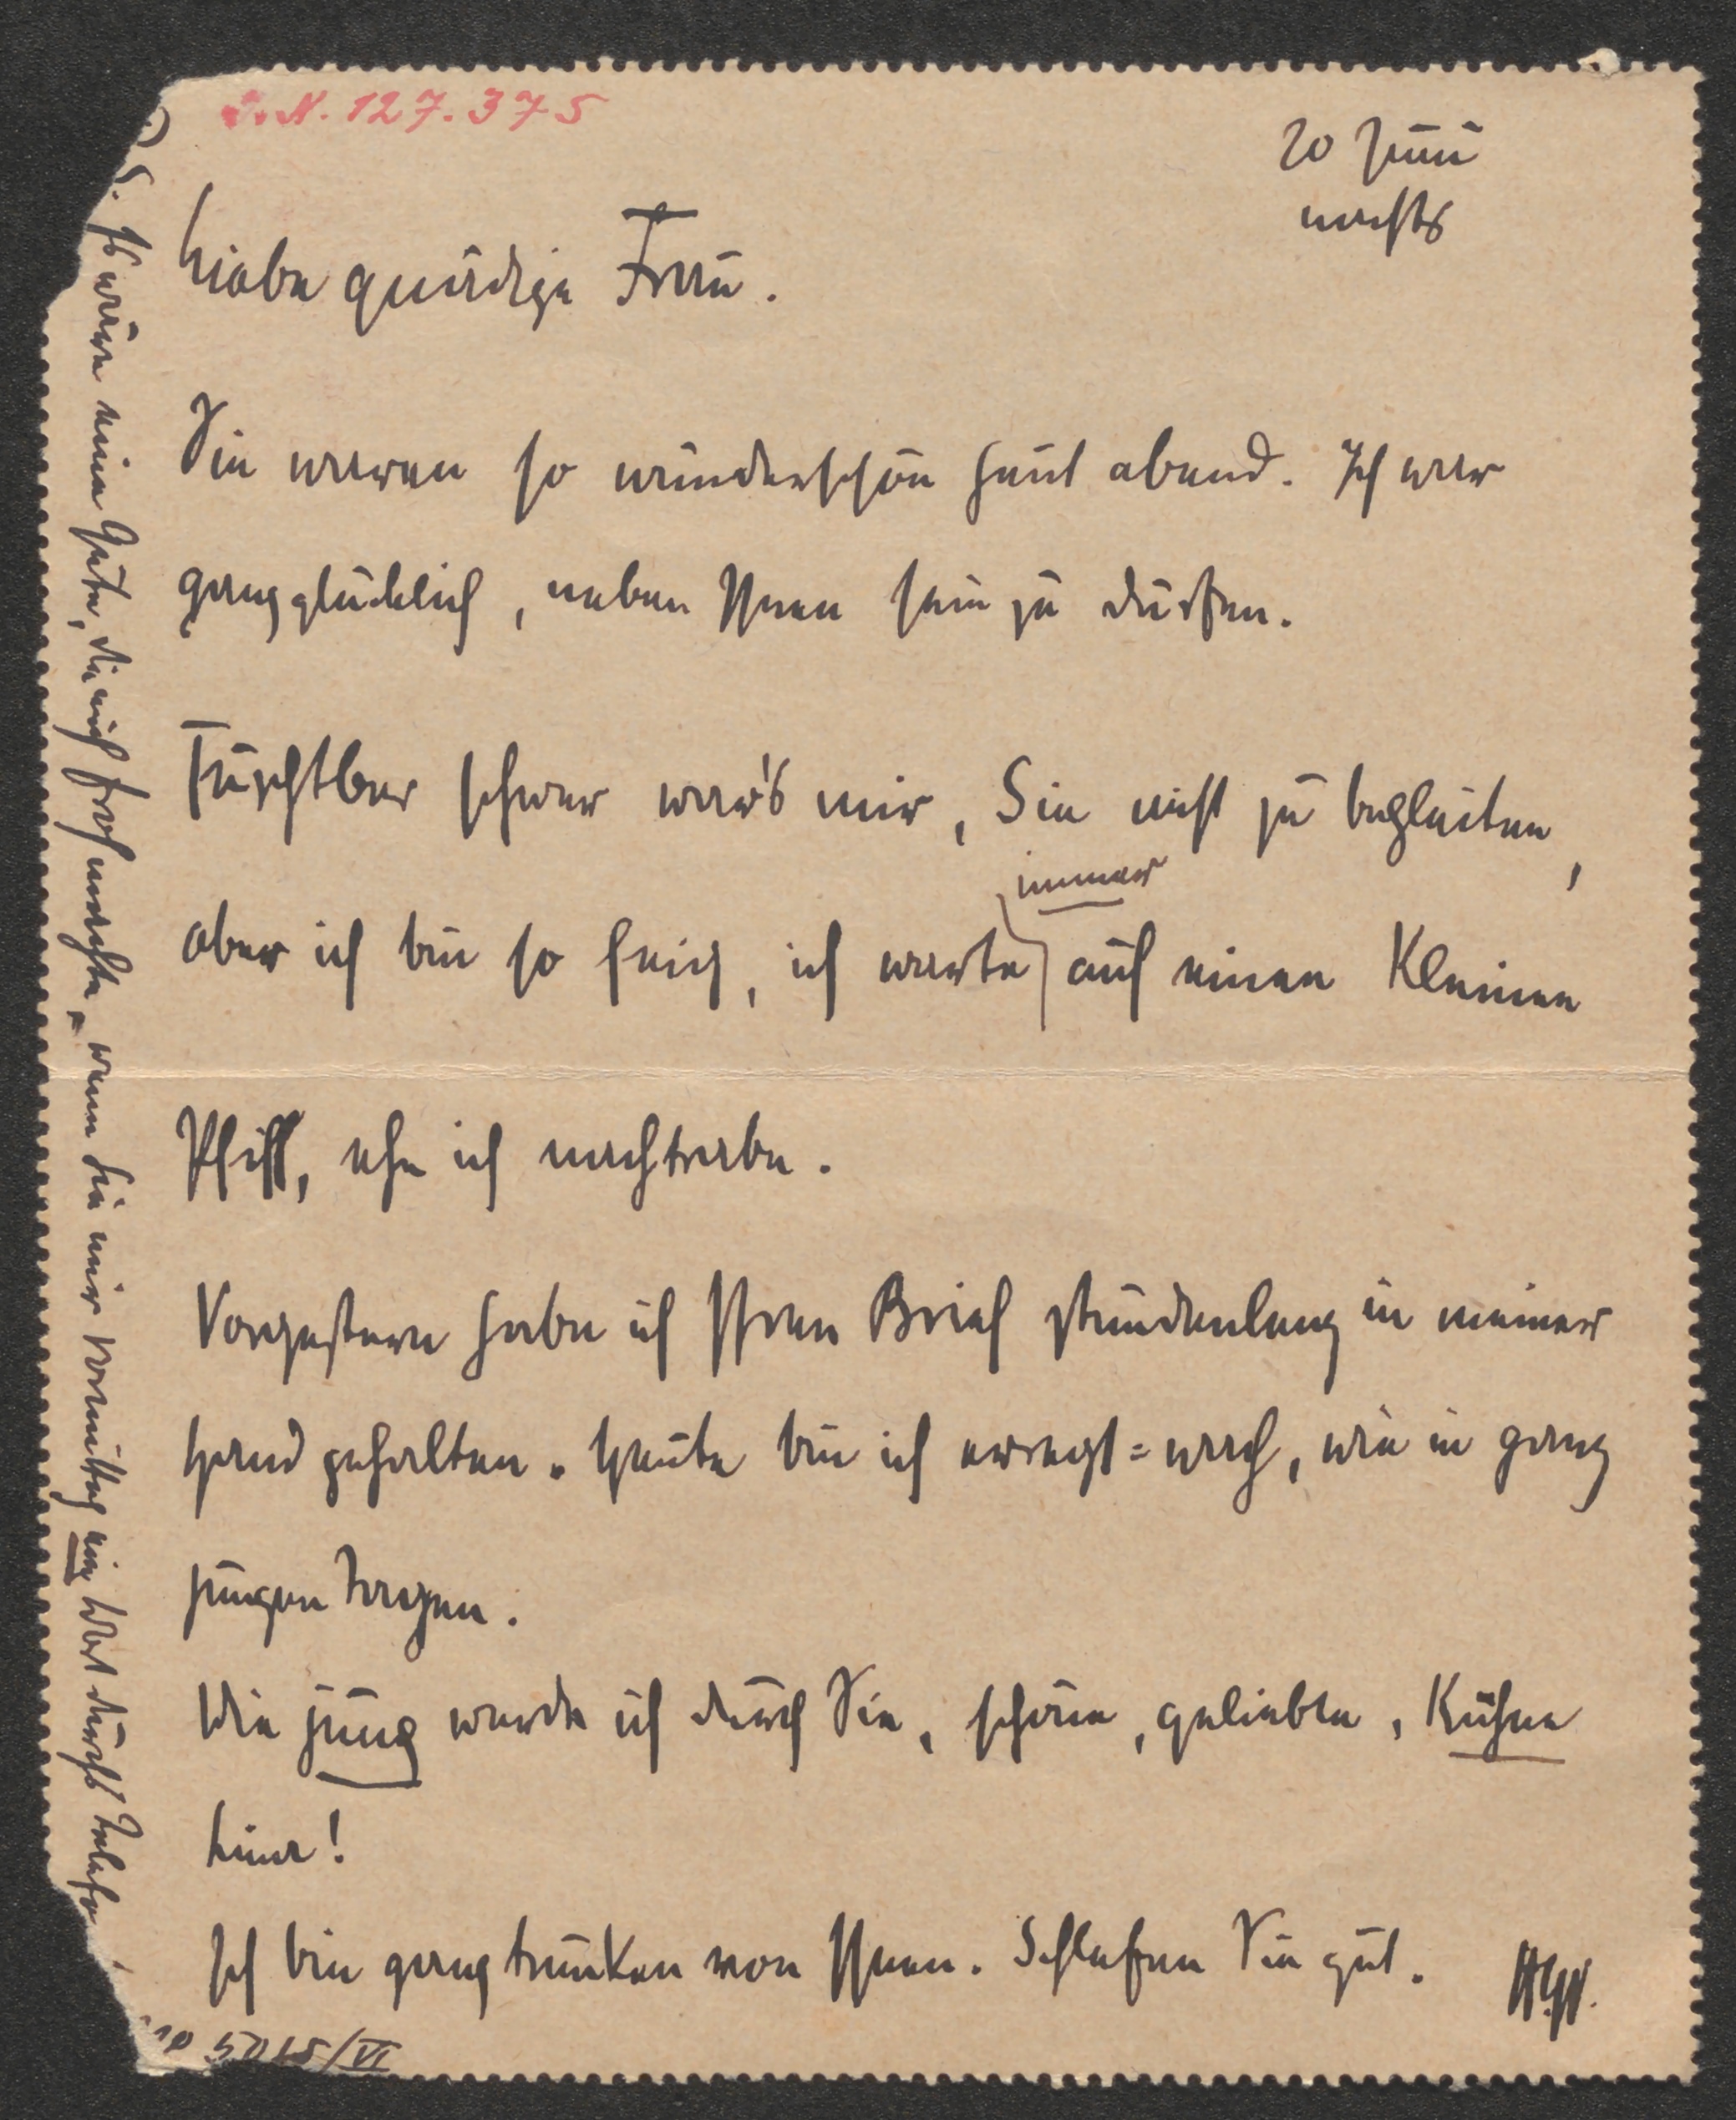 I.N. 127.375
20 Juni
nachts
Liebe gnädige Frau.
Sie waren so wunderschön heut abend. Ich war
ganz glücklich, neben Ihnen sein zu dürfen.
Furchtbar schwer war's mir, Sie nicht zu begleiten,
immer
aber ich bin so feig, ich warte auf einen kleinen
Pfiff, ehe ich nachtrabe.
Vorgestern habe ich Ihren Brief stundenlang in meiner
Hand gehalten. Heute bin ich erregt=wach, wie in ganz
jungen Tagen.
Wie jung werde ich durch Sie, schöne, geliebte, kühne
Ich bin ganz trunken von Ihnen. Schlafen Sie gut.
S. Es wäre eine Güte, die mich froh machte, wenn Sie mir vormittag ein Wort durchs Telefo
5015/VI